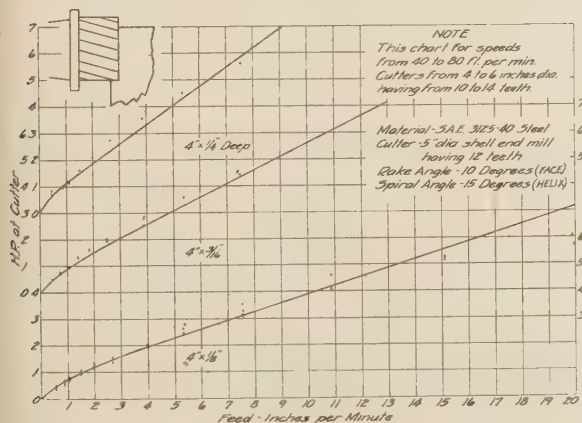 NOTE
This chart for speeds
from 40 to 80 ft. per min.
Cutters from 4 to 6 inches dia.
having from 10 to 14 teeth.
Material - S.A.E. 3125-40 Steel
Cutter - 5" dia shell end mill
having 12 teeth
Rake Angle - 10 Degrees (FACE)
Spiral Angle - 15 Degrees (HELIX)
H.P. at Cutter
4" x 1/4 Deep
4" x 3/16
4" x 1/8"
0 1 2 3 4 5 6 7 8 9 10 11 12 13 14 15 16 17 18 19 20
Feed - Inches per Minute